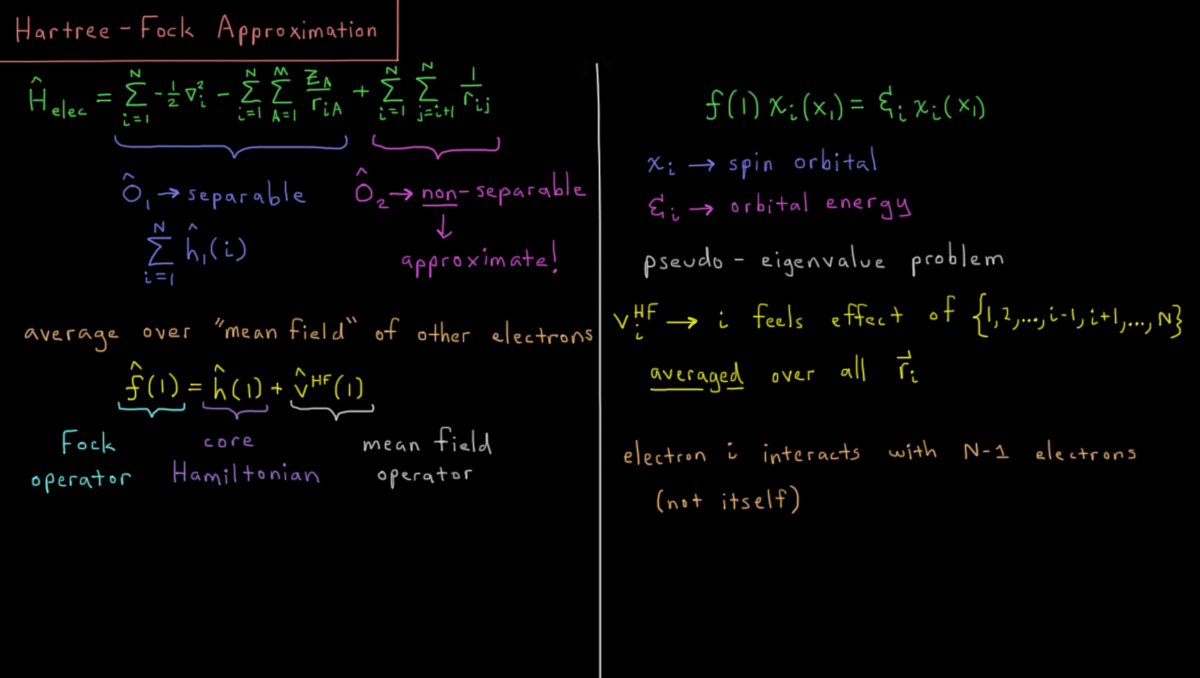 Hartree-Fock Approximation
Ĥ_elec = Σ_{i=1}^{N} -½ ∇_i² - Σ_{i=1}^{N} Σ_{A=1}^{M} Z_A/r_{iA} + Σ_{i=1}^{N} Σ_{j=i+1}^{N} 1/r_{ij}
Ô₁ → separable
Σ_{i=1}^{N} ĥ₁(i)
Ô₂ → non-separable
↓
approximate!
average over "mean field" of other electrons
f̂(1) = ĥ(1) + v̂^{HF}(1)
Fock operator
core Hamiltonian
mean field operator
f(1) χ_i(x₁) = ℰ_i χ_i(x₁)
χ_i → spin orbital
ℰ_i → orbital energy
pseudo-eigenvalue problem
v_i^{HF} → i feels effect of {1,2,...,i-1,i+1,...,N}
averaged over all r⃗_i
electron i interacts with N-1 electrons
(not itself)